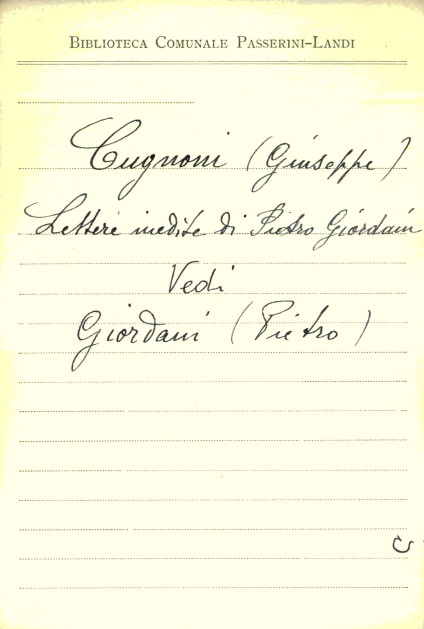 BIBLIOTECA COMUNALE PASSERINI-LANDI
Cugnoni (Giuseppe)
Lettere inedite di Pietro Giordani
Vedi
Giordani (Pietro)